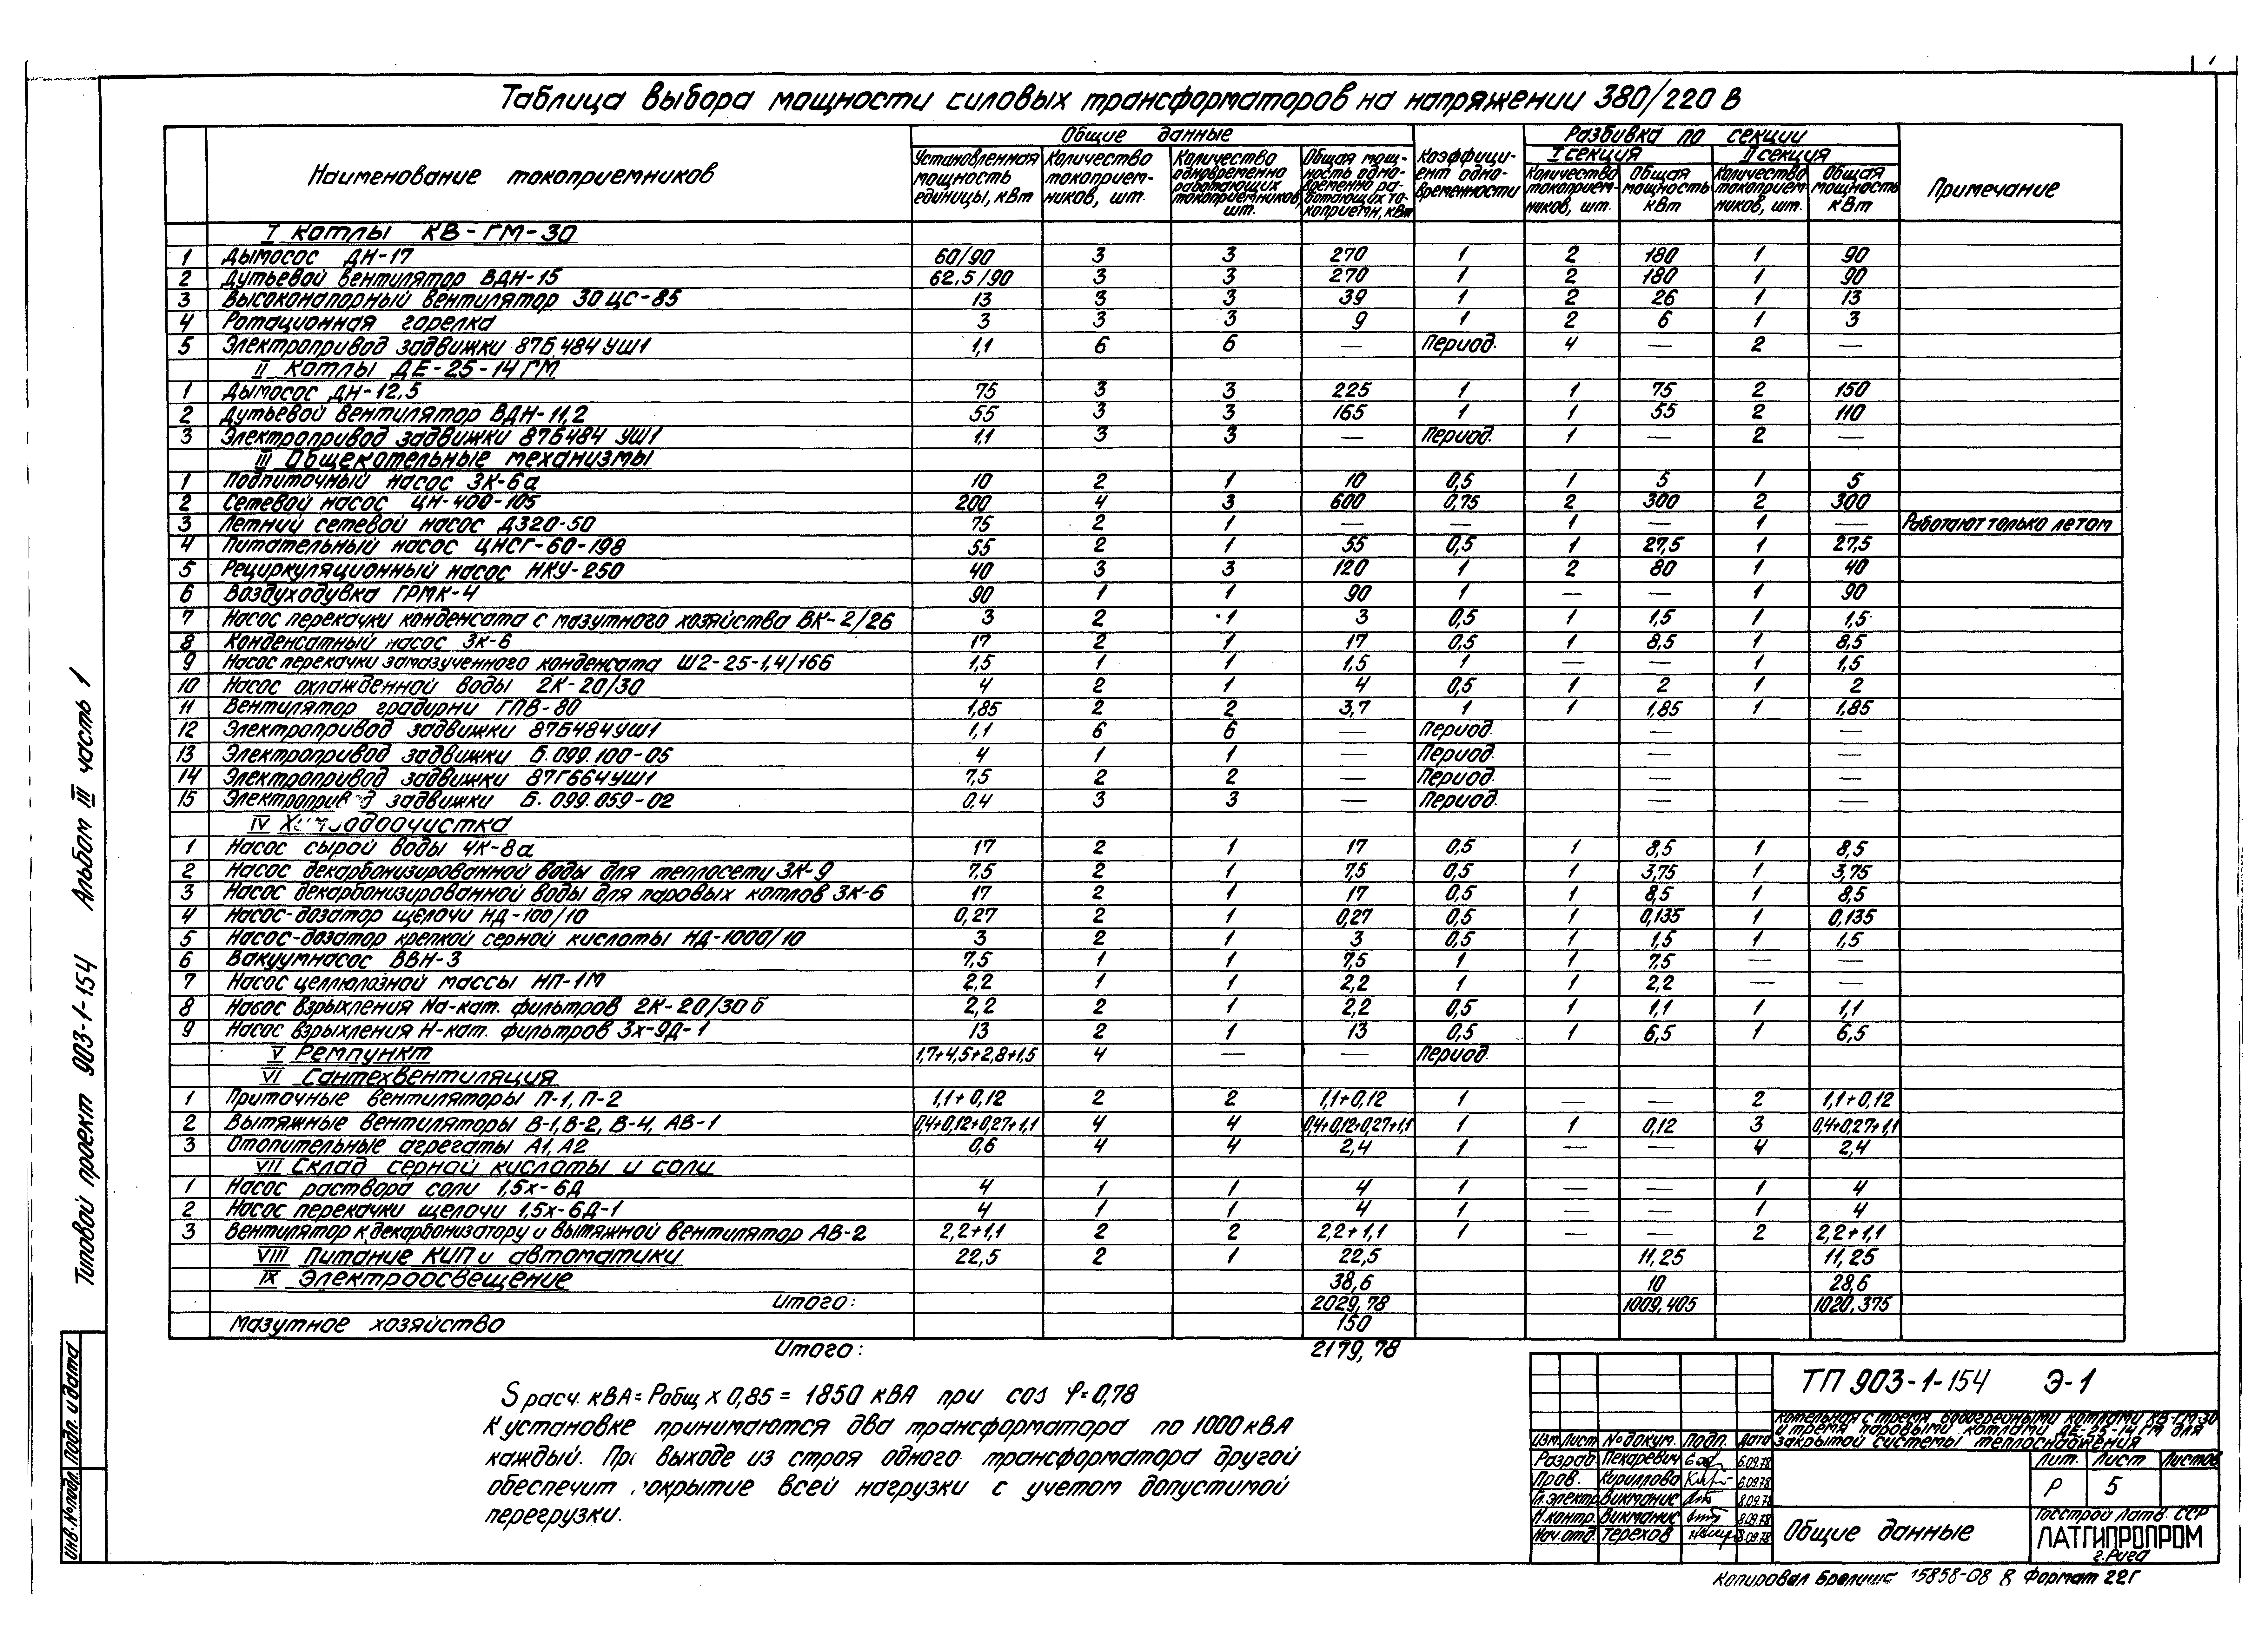 Таблица выбора мощности силовых трансформаторов на напряжении 380/220 В
Наименование токоприемников
Общие данные
Установленная мощность единицы, кВт
Количество токоприемников, шт.
Количество одновременно работающих токоприемников, шт.
Общая мощность одновременно работающих токоприемн, кВт
Коэффициент одновременности
Разбивка по секции
I секция
II секция
Количество токоприемников, шт.
Общая мощность кВт
Количество токоприемников, шт.
Общая мощность кВт
Примечание
I Котлы КВ-ГМ-30
1 Дымосос ДН-17 60/90 3 3 270 1 2 180 1 90
2 Дутьевой вентилятор ВДН-15 62,5/90 3 3 270 1 2 180 1 90
3 Высоконапорный вентилятор 30ЦС-85 13 3 3 39 1 2 26 1 13
4 Ротационная горелка 3 3 3 9 1 2 6 1 3
5 Электропривод задвижки 87Б484УШ1 1,1 6 6 — Период. 4 — 2 —
II Котлы ДЕ-25-14ГМ
1 Дымосос ДН-12,5 75 3 3 225 1 1 75 2 150
2 Дутьевой вентилятор ВДН-11,2 55 3 3 165 1 1 55 2 110
3 Электропривод задвижки 87Б484 УШ1 1,1 3 3 — Период. 1 — 2 —
III Общекотельные механизмы
1 Подпиточный насос 3К-6а 10 2 1 10 0,5 1 5 1 5
2 Сетевой насос ЦН-400-105 200 4 3 600 0,75 2 300 2 300
3 Летний сетевой насос Д320-50 75 2 1 — — 1 — 1 — Работают только летом
4 Питательный насос ЦНСГ-60-198 55 2 1 55 0,5 1 27,5 1 27,5
5 Рециркуляционный насос НКУ-250 40 3 3 120 1 2 80 1 40
6 Воздуходувка ГРМК-4 90 1 1 90 1 — — 1 90
7 Насос перекачки конденсата с мазутного хозяйства ВК-2/26 3 2 1 3 0,5 1 1,5 1 1,5
8 Конденсатный насос 3К-6 17 2 1 17 0,5 1 8,5 1 8,5
9 Насос перекачки замазученного конденсата Ш2-25-1,4/16б 1,5 1 1 1,5 1 — — 1 1,5
10 Насос охлажденной воды 2К-20/30 4 2 1 4 0,5 1 2 1 2
11 Вентилятор градирни ГПВ-80 1,85 2 2 3,7 1 1 1,85 1 1,85
12 Электропривод задвижки 87Б484УШ1 1,1 6 6 — Период. — —
13 Электропривод задвижки Б.099.100-05 4 1 1 — Период. — —
14 Электропривод задвижки 87Г664УШ1 7,5 2 2 — Период. — —
15 Электропривод задвижки Б.099.059-02 0,4 3 3 — Период. — —
IV Химводоочистка
1 Насос сырой воды 4К-8а 17 2 1 17 0,5 1 8,5 1 8,5
2 Насос декарбонизированной воды для теплосети 3К-9 7,5 2 1 7,5 0,5 1 3,75 1 3,75
3 Насос декарбонизированной воды для паровых котлов 3К-6 17 2 1 17 0,5 1 8,5 1 8,5
4 Насос-дозатор щелочи НД-100/10 0,27 2 1 0,27 0,5 1 0,135 1 0,135
5 Насос-дозатор крепкой серной кислоты НД-1000/10 3 2 1 3 0,5 1 1,5 1 1,5
6 Вакуумнасос ВВН-3 7,5 1 1 7,5 1 1 7,5 — —
7 Насос целлюлозной массы НП-1М 2,2 1 1 2,2 1 1 2,2 — —
8 Насос взрыхления Na-кат. фильтров 2К-20/30б 2,2 2 1 2,2 0,5 1 1,1 1 1,1
9 Насос взрыхления Н-кат. фильтров 3х-9Д-1 13 2 1 13 0,5 1 6,5 1 6,5
V Ремпункт 1,7+4,5+2,8+1,5 4 — — Период.
VI Сантехвентиляция
1 Приточные вентиляторы П-1, П-2 1,1+0,12 2 2 1,1+0,12 1 — — 2 1,1+0,12
2 Вытяжные вентиляторы В-1, В-2, В-4, АВ-1 0,4+0,12+0,27+1,1 4 4 0,4+0,12+0,27+1,1 1 1 0,12 3 0,4+0,27+1,1
3 Отопительные агрегаты А1, А2 0,6 4 4 2,4 1 — — 4 2,4
VII Склад серной кислоты и соли
1 Насос раствора соли 1,5х-6Д 4 1 1 4 1 — — 1 4
2 Насос перекачки щелочи 1,5х-6Д-1 4 1 1 4 1 — — 1 4
3 Вентилятор к декарбонизатору и вытяжной вентилятор АВ-2 2,2+1,1 2 2 2,2+1,1 1 — — 2 2,2+1,1
VIII Питание КИП и автоматики 22,5 2 1 22,5 11,25 11,25
IX Электроосвещение 38,6 10 28,6
Итого: 2029,78 1009,405 1020,375
Мазутное хозяйство 150
Итого: 2179,78
S расч. кВА = Робщ х 0,85 = 1850 кВА при cos φ = 0,78
К установке принимаются два трансформатора по 1000 кВА
каждый. При выходе из строя одного трансформатора другой
обеспечит покрытие всей нагрузки с учетом допустимой
перегрузки.
Типовой проект 903-1-154 Альбом III часть 1
Инв.№подл. Подп. и дата
ТП 903-1-154 Э-1
Котельная с тремя водогрейными котлами КВ-ГМ-30
и тремя паровыми котлами ДЕ-25-14ГМ для
закрытой системы теплоснабжения
Изм. Лист № докум. Подп. Дата
Разраб Пекаревич 6.09.78
Пров. Кириллова 6.09.78
Гл.электр. Викманис 8.09.78
Н.контр. Викманис 8.09.78
Нач.отд. Терехов 8.09.78
Лит. Лист Листов
Р 5
Общие данные
Госстрой Латв. ССР
ЛАТГИПРОПРОМ
г.Рига
Копировал 15858-08 Формат 22Г